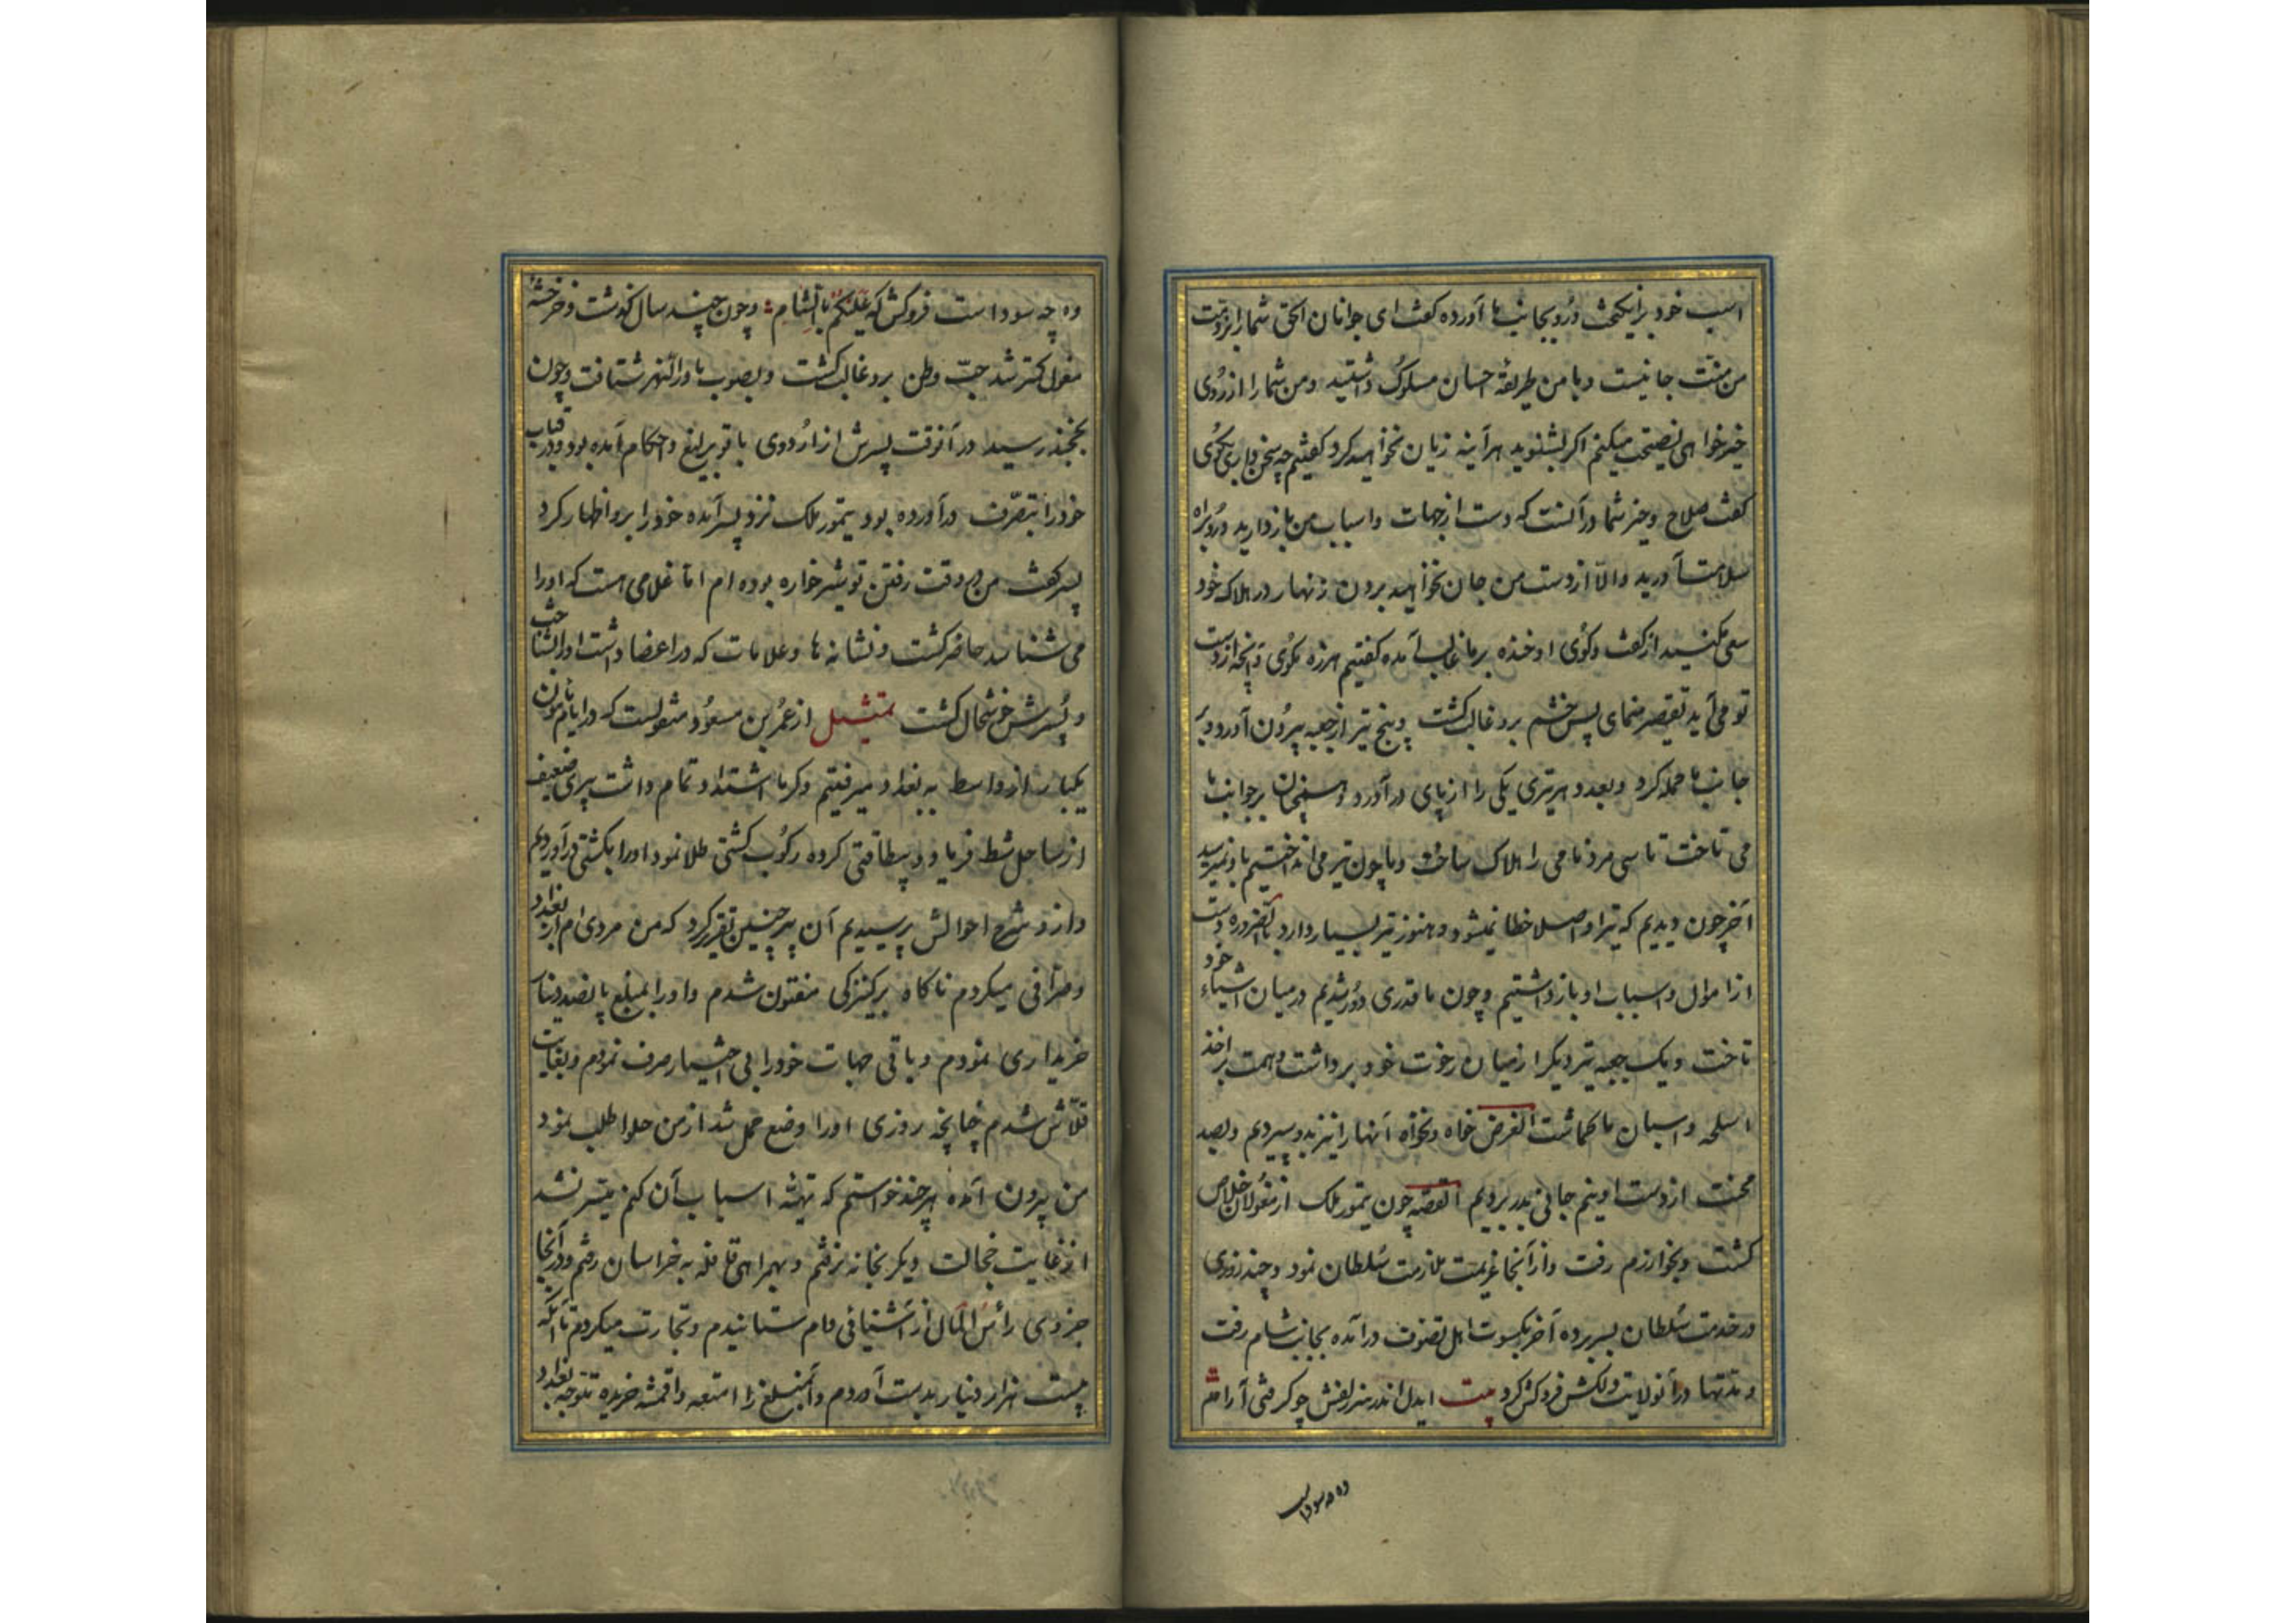 اسب خود برانکیخت و رو بجانب ما آورده کفت ای جوانان الحق شما را بر ذمت
من منت جانیست و با من طریقهٔ احسان مسلوک داشتید و من شما را از روی
خیرخواهی نصیحت میکنم اکر بشنوید هرآینه زیان نخواهید کرد کفتیم چه سخن داری بکوی
کفت صلاح و خیر شما در آنست که دست از جهات و اسباب من بازدارید و رو براه
سلامت آورید و الّا از دست من جان نخواهید بردن زنهار در هلاک خود
سعی مکنید از کفت و کوی او خنده بر ما غالب آمده کفتیم هرزه مکوی و آنچه از دست
تو می‌آید تقصیر منمای پس خشم برو غالب کشت و پنج تیر از جعبه بیرون آورد و بر
جانب ما حمله کرد و بعدد هر تیری یکی را از پای درآورد و همچنان بر جوانب ما
می تاخت تا سی مرد نامی را هلاک ساخت و ما چون تیر می‌انداختیم باو نمیرسید
آخر چون دیدیم که تیر او اصلا خطا نمیشود و هنوز تیر بسیار دارد بالضروره دست
از اموال و اسباب او بازداشتیم و چون ما قدری دور شدیم در میان اشیاء خود
تاخت و یک جعبه تیر دیکر از میان رخوت خود برداشت و همت بر اخذ
اسلحه و اسبان ما کماشت الغرض خواه و نخواه آنها را نیز بدو سپردیم و بصد
محنت از دست او نیم جانی بدر بردیم القصه چون تیمور ملک از مغولان خلاص
کشت و بخوارزم رفت و از آنجا عزیمت ملازمت سلطان نمود و چند روزی
در خدمت سلطان بسر برده آخر بکسوت اهل تصوف درآمده بجانب شام رفت
و مدتها در آنولایت دلکش فروکش کرد بیت ایدل اندر سر زلفش چو کرفتی آرام
وه چه سوداست
وه چه سوداست فروکش که علیکم بالشام و چون چند سال کذشت و خرخشهٔ
مغول کمتر شد حبّ وطن برو غالب کشت و بصوب ماوراءالنهر شتافت و چون
بخجند رسید در آنوقت پسرش از اردوی باتو یرلیغ و احکام آمده بود و در قباب
خود را بتصرف درآورده بود تیمور ملک نزد پسر آمده خود را برو اظهار کرد
پسر کفت من در وقت رفتن تو شیرخواره بوده ام اما غلامی است که او را
می شناسد حاضر کشت و نشانه ها و علامات که در اعضا داشت او را شناخت
و پسرش خوشحال کشت تمثیل از عمر بن مسعود منقولست که در ایام مأمون
یکبار از واسط به بغداد میرفتیم و کرما اشتداد تمام داشت پیری ضعیف
از ساحل شط فریاد و بیطاقتی کرده رکوب کشتی طلب نمود او را بکشتی درآوردیم
و ازو شرح احوالش پرسیدیم آن پیر چنین تقریر کرد که من مردی ام از بغداد
و صرافی میکردم ناکاه بر کنیزکی مفتون شدم و او را بمبلغ پانصد دینار
خریداری نمودم و باقی جهات خود را بی اختیار صرف نمودم و بغایت
قلاش شدم چنانچه روزی او را وضع حمل شد از من حلوا طلب نمود
من بیرون آمده هر چند خواستم که تهیئه اسباب آن کنم میسر نشد
از غایت خجالت دیکر بخانه نرفتم و بهمراهی قافله به خراسان رفتم و در آنجا
جزوی رأس المال از آشنائی وام ستانیدم و تجارت میکردم تا آنکه
بیست هزار دینار بدست آوردم و آنمبلغ را امتعه و اقمشه خریده متوجه بغداد